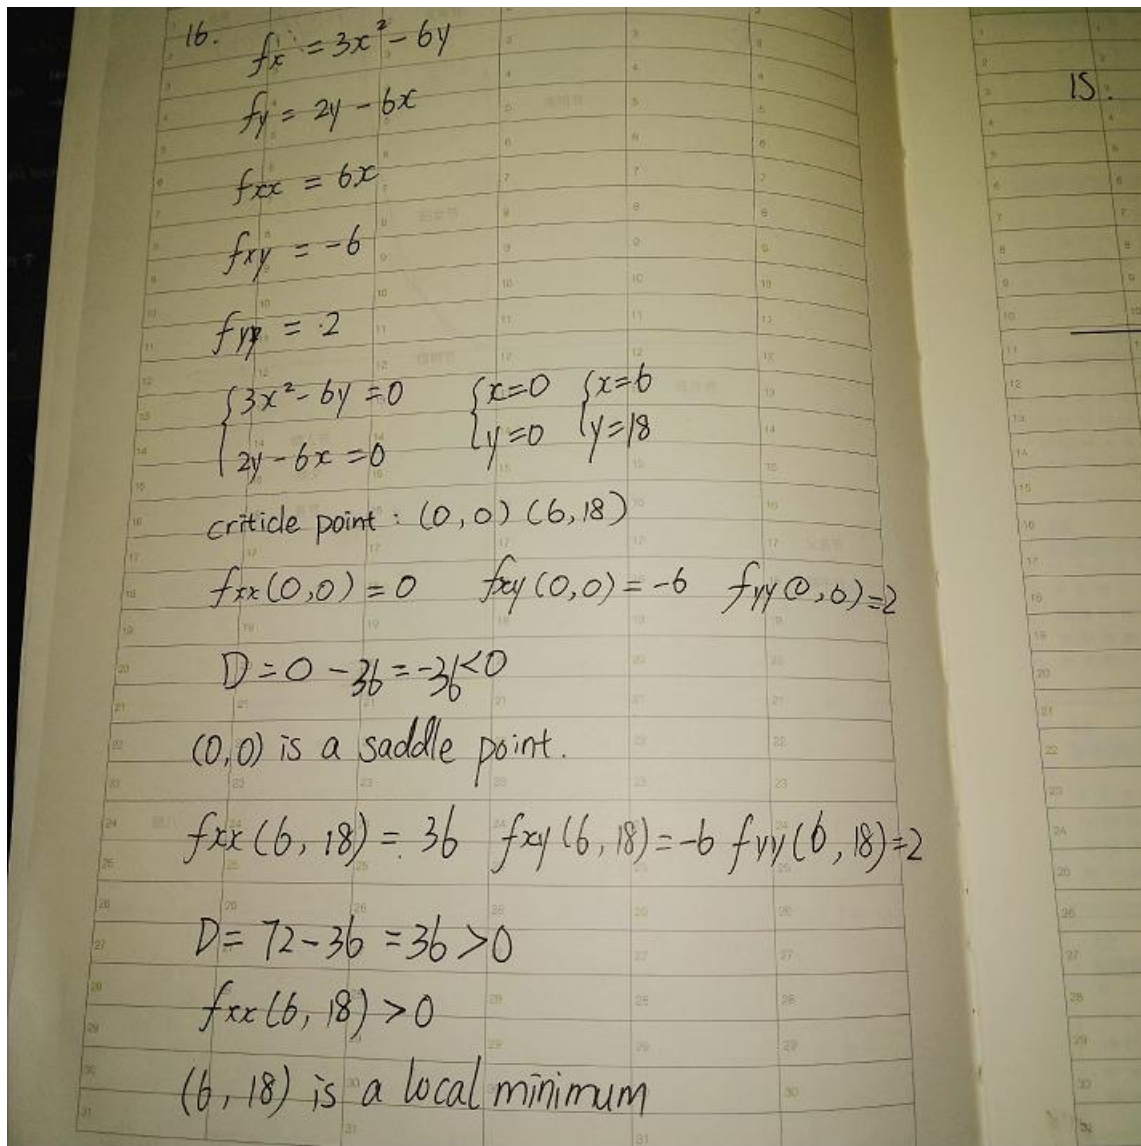 16. fx = 3x² - 6y
fy = 2y - 6x
fxx = 6x
fxy = -6
fyy = 2
{3x² - 6y = 0 {x=0 {x=6
2y - 6x = 0 y=0 y=18
criticle point : (0,0) (6,18)
fxx(0,0) = 0 fxy(0,0) = -6 fyy(0,0)=2
D = 0 - 36 = -36<0
(0,0) is a saddle point.
fxx(6,18) = 36 fxy(6,18) = -6 fyy(6,18)=2
D = 72 - 36 = 36 > 0
fxx(6,18) > 0
(6,18) is a local minimum
15.